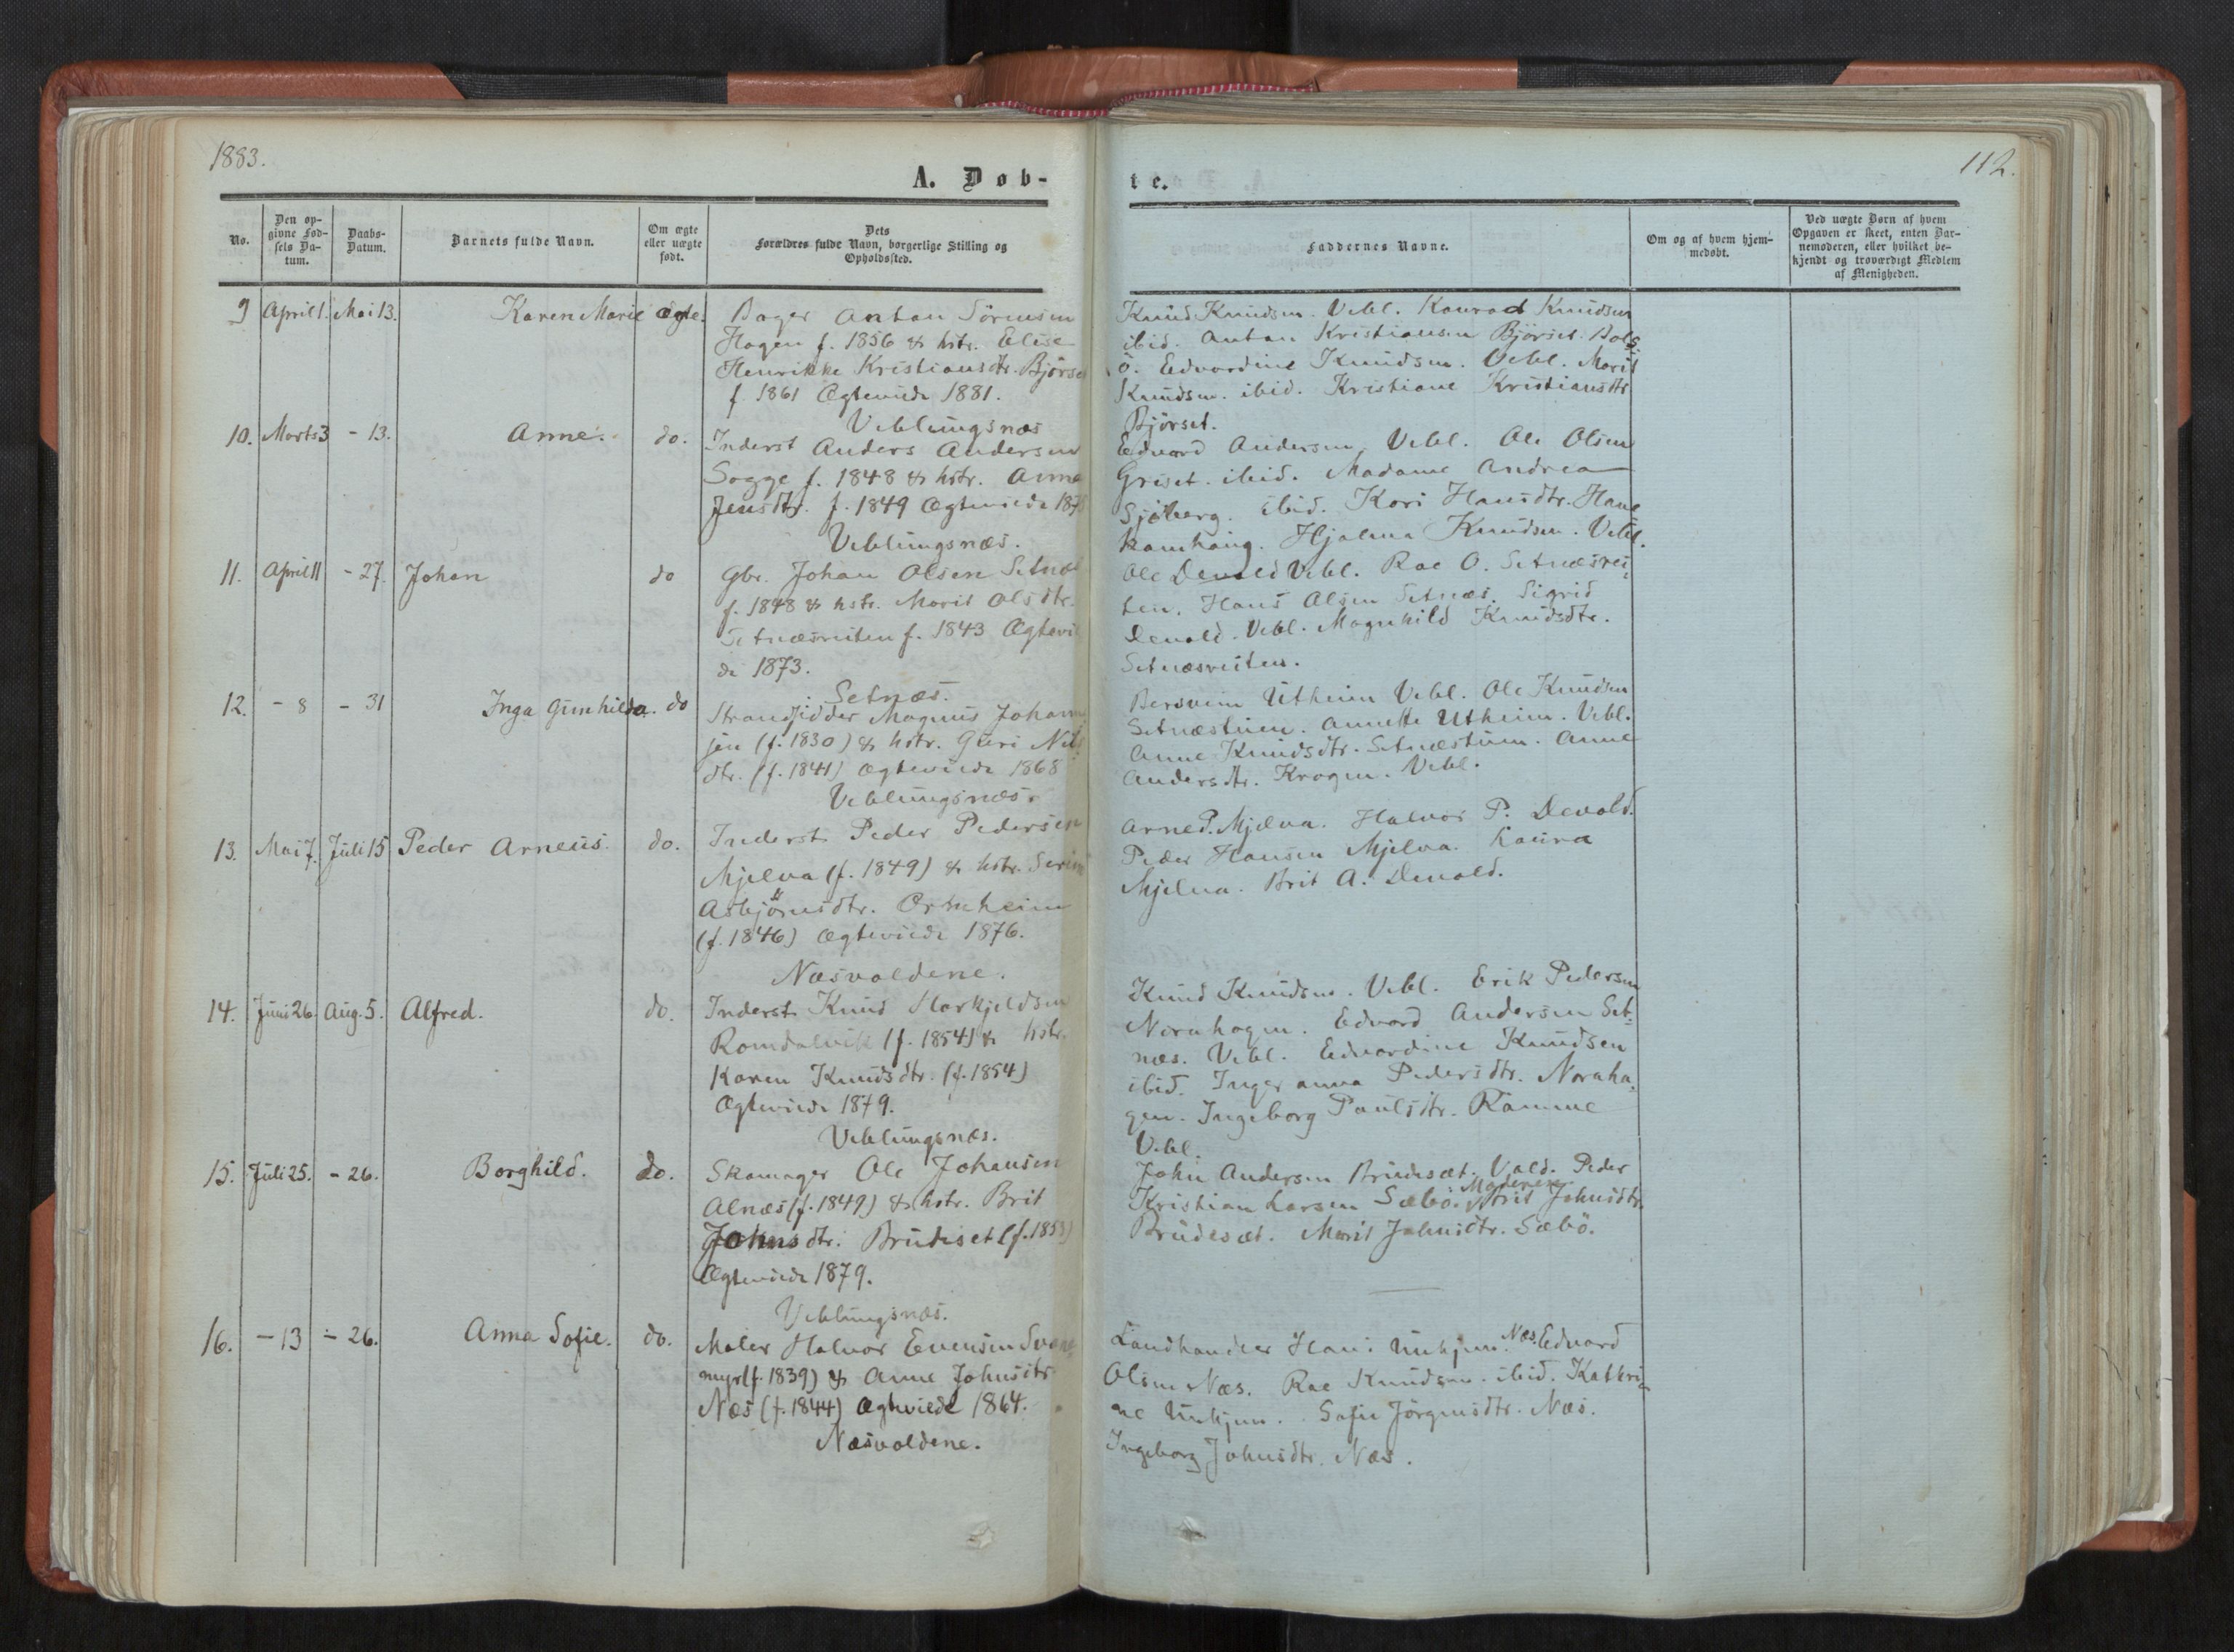 1883.
112.
A. Døb-
te.
No.
Den op-
givne Fød-
sels Da-
tum.
Daabs-
Datum.
Barnets fulde Navn.
Om ægte
eller uægte
født.
Dets
Forældres fulde Navn, borgerlige Stilling og
Opholdssted.
Faddernes Navne.
Om og af hvem hjem-
medøbt.
Ved uægte Børn af hvem
Opgaven er skeet, enten Bar-
nemoderen, eller hvilket be-
kjendt og troværdigt Medlem
af Menigheden.
9 April 1. Mai 13. Karen Marie ægte.
Bager Anton Sörensen
Hagen f. 1856 & hstr. Elise
Henrikke Kristiansdtr. Björset
f. 1861 Ægteviede 1881.
Veblungsnæs
Knud Knudsen. Vebl. Konrad Knudsen
ibid. Anton Kristiansen Björset. Bols-
ö. Edvardine Knudsen. Vebl. Marit
Knudsen. ibid. Kristiane Kristiansdtr
Björset.
10. Marts 3 - 13. Anne. do.
Inderst Anders Andersen
Sogge f. 1848 & hstr. Anne
Jensdtr. f. 1849 Ægteviede 187
Veblungsnæs.
Edvard Andersen Vebl. Ole Olsen
Griset. ibid. Madame Andrea
Sjöberg. ibid. Kari Hansdtr. Hane
kamhaug. Hjalma Knudsen. Vebl.
11. April 11 - 27. Johan do
Gbr. Johan Olsen Setnæs
f. 1848 & hstr. Marit Olsdtr.
Setnæsreiten f. 1843 Ægtevi
de 1873.
Setnæs.
Ole Devold Vebl. Rae O. Setnæsrei-
ten. Hans Olsen Setnæs. Sigrid
Devold. Vebl. Magnhild Knudsdtr.
Setnæsreiten.
12. - 8 - 31 Inga Gunhilda. do
Strandsidder Magnus Johan
sen (f. 1830) & hstr. Guri Nils
dtr. (f. 1841) Ægteviede 1868
Veblungsnæs.
Bersvein Utheim Vebl. Ole Knudsen
Setnæstuen. Annette Utheim. Vebl.
Anne Knudsdtr. Setnæstuen. Anne
Andersdtr. Krogen. Vebl.
13. Mai 7. Juli 15 Peder Arneus. do.
Inderst Peder Pedersen
Mjelva (f. 1849) & hstr. Seri
Asbjörnsdtr. Ormheim
(f. 1846) Ægteviede 1876.
Næsvoldene.
Arne P. Mjelva. Halvor P. Devold.
Peder Hansen Mjelva. Laura
Mjelva. Brit A. Devold.
14. Juni 26. Aug. 5. Alfred. do.
Inderst Knud Torkjeldsen
Romdalvik (f. 1854) & hstr.
Karen Knudsdtr. (f. 1854)
Ægteviede 1879.
Veblungsnæs.
Knud Knudsen. Vebl. Erik Pedersen
Norahagen. Edvard Andersen Set-
næs. Vebl. Edvardine Knudsen
ibid. Inger Anna Pedersdtr. Noraha-
gen. Ingeborg Paulsdtr. Ramme
Vebl.
15. Juli 25. - 26. Borghild. do.
Skomager Ole Johansen
Alnæs (f. 1849) & hstr. Brit
Johnsdtr. Brudeset (f. 1853)
Ægteviede 1879.
Veblungsnæs.
John Andersen Brudesæt. Vold. Peder
Kristian Larsen Sæbö. Moderen Brit Johnsdtr.
Brudesæt. Marit Johnsdtr. Sæbö.
16. - 13 - 26. Anna Sofie. do.
Maler Halvor Evensen Svane-
myr (f. 1839) & Anne Johnsdtr
Næs (f. 1844) Ægteviede 1864.
Næsvoldene.
Landhandler Hans Unhjem. Næs. Edvard
Olsen Næs. Rae Knudsen. ibid. Kathri-
ne Unhjem. Sofie Jörgensdtr. Næs.
Ingeborg Johnsdtr. Næs.